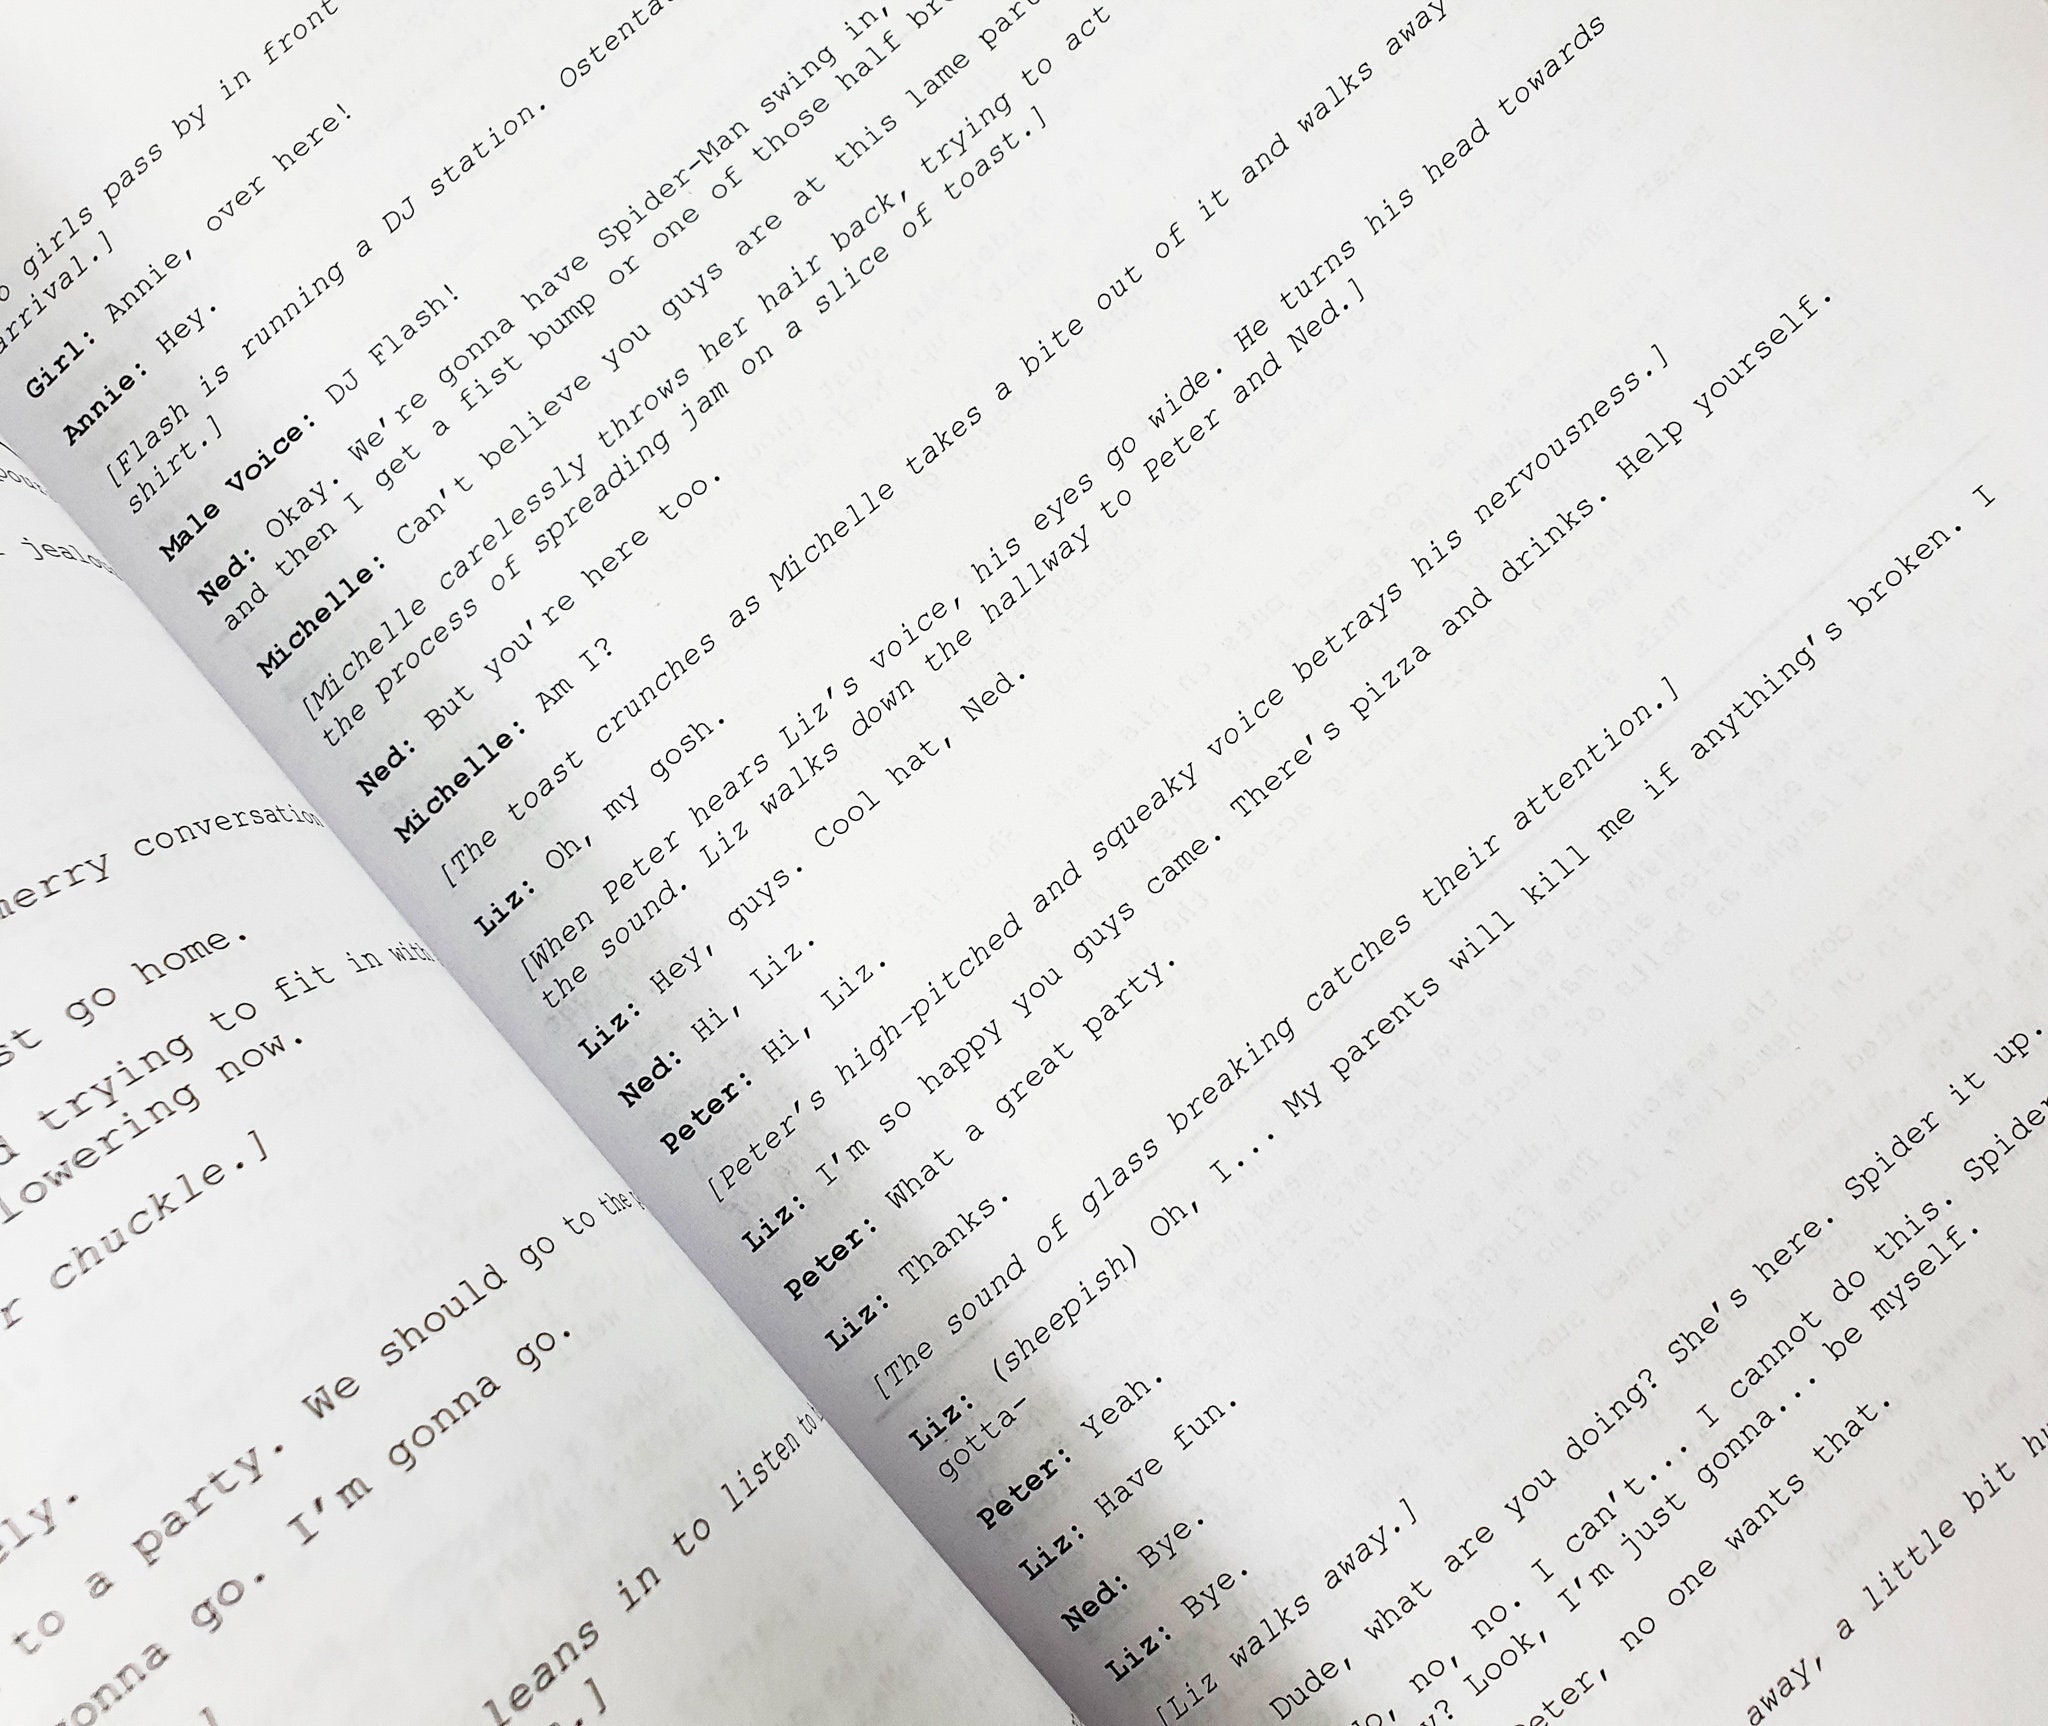 merry conversation
go home.
trying to fit in with
lowering now.
chuckle.]
We should go to the
to a party.
gonna go. I'm gonna go.
leans in to listen to
girls pass by in front
arrival.]
Girl: Annie, over here!
Annie: Hey.
[Flash is running a DJ station.
shirt.]
Male Voice: DJ Flash!
Ned: Okay. We're gonna have Spider-Man swing in,
and then I get a fist bump or one of those half
Michelle: Can't believe you guys are at this lame
[Michelle carelessly throws her hair back, trying to act
the process of spreading jam on a slice of toast.]
Ned: But you're here too.
Michelle: Am I?
[The toast crunches as Michelle takes a bite out of it and walks away
Liz: Oh, my gosh.
[When Peter hears Liz's voice, his eyes go wide. He turns his head towards
the sound. Liz walks down the hallway to Peter and Ned.]
Liz: Hey, guys. Cool hat, Ned.
Ned: Hi, Liz.
Peter: Hi, Liz.
[Peter's high-pitched and squeaky voice betrays his nervousness.]
Liz: I'm so happy you guys came. There's pizza and drinks. Help yourself.
Peter: What a great party.
Liz: Thanks.
[The sound of glass breaking catches their attention.]
Liz: (sheepish) Oh, I... My parents will kill me if anything's broken. I
gotta-
Peter: Yeah.
Liz: Have fun.
Ned: Bye.
Liz: Bye.
[Liz walks away.]
Dude, what are you doing? She's here. Spider it up.
no, no. I can't... I cannot do this. Spider
Look, I'm just gonna... be myself.
no one wants that.
away, a little bit